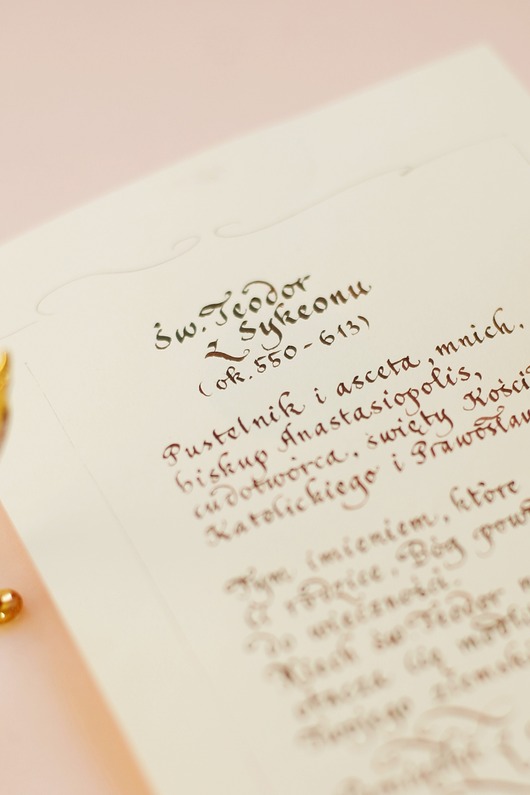 św. Teodor
z Sykeonu
(ok. 550 - 613)
Pustelnik i asceta, mnich.
biskup Anastasiopolis,
cudotwórca, święty
Katolickiego i
Tym imieniem, które
Ci rodzice. Bóg
do wieczności.
Niech św. Teodor
otacza Cię
Twojego